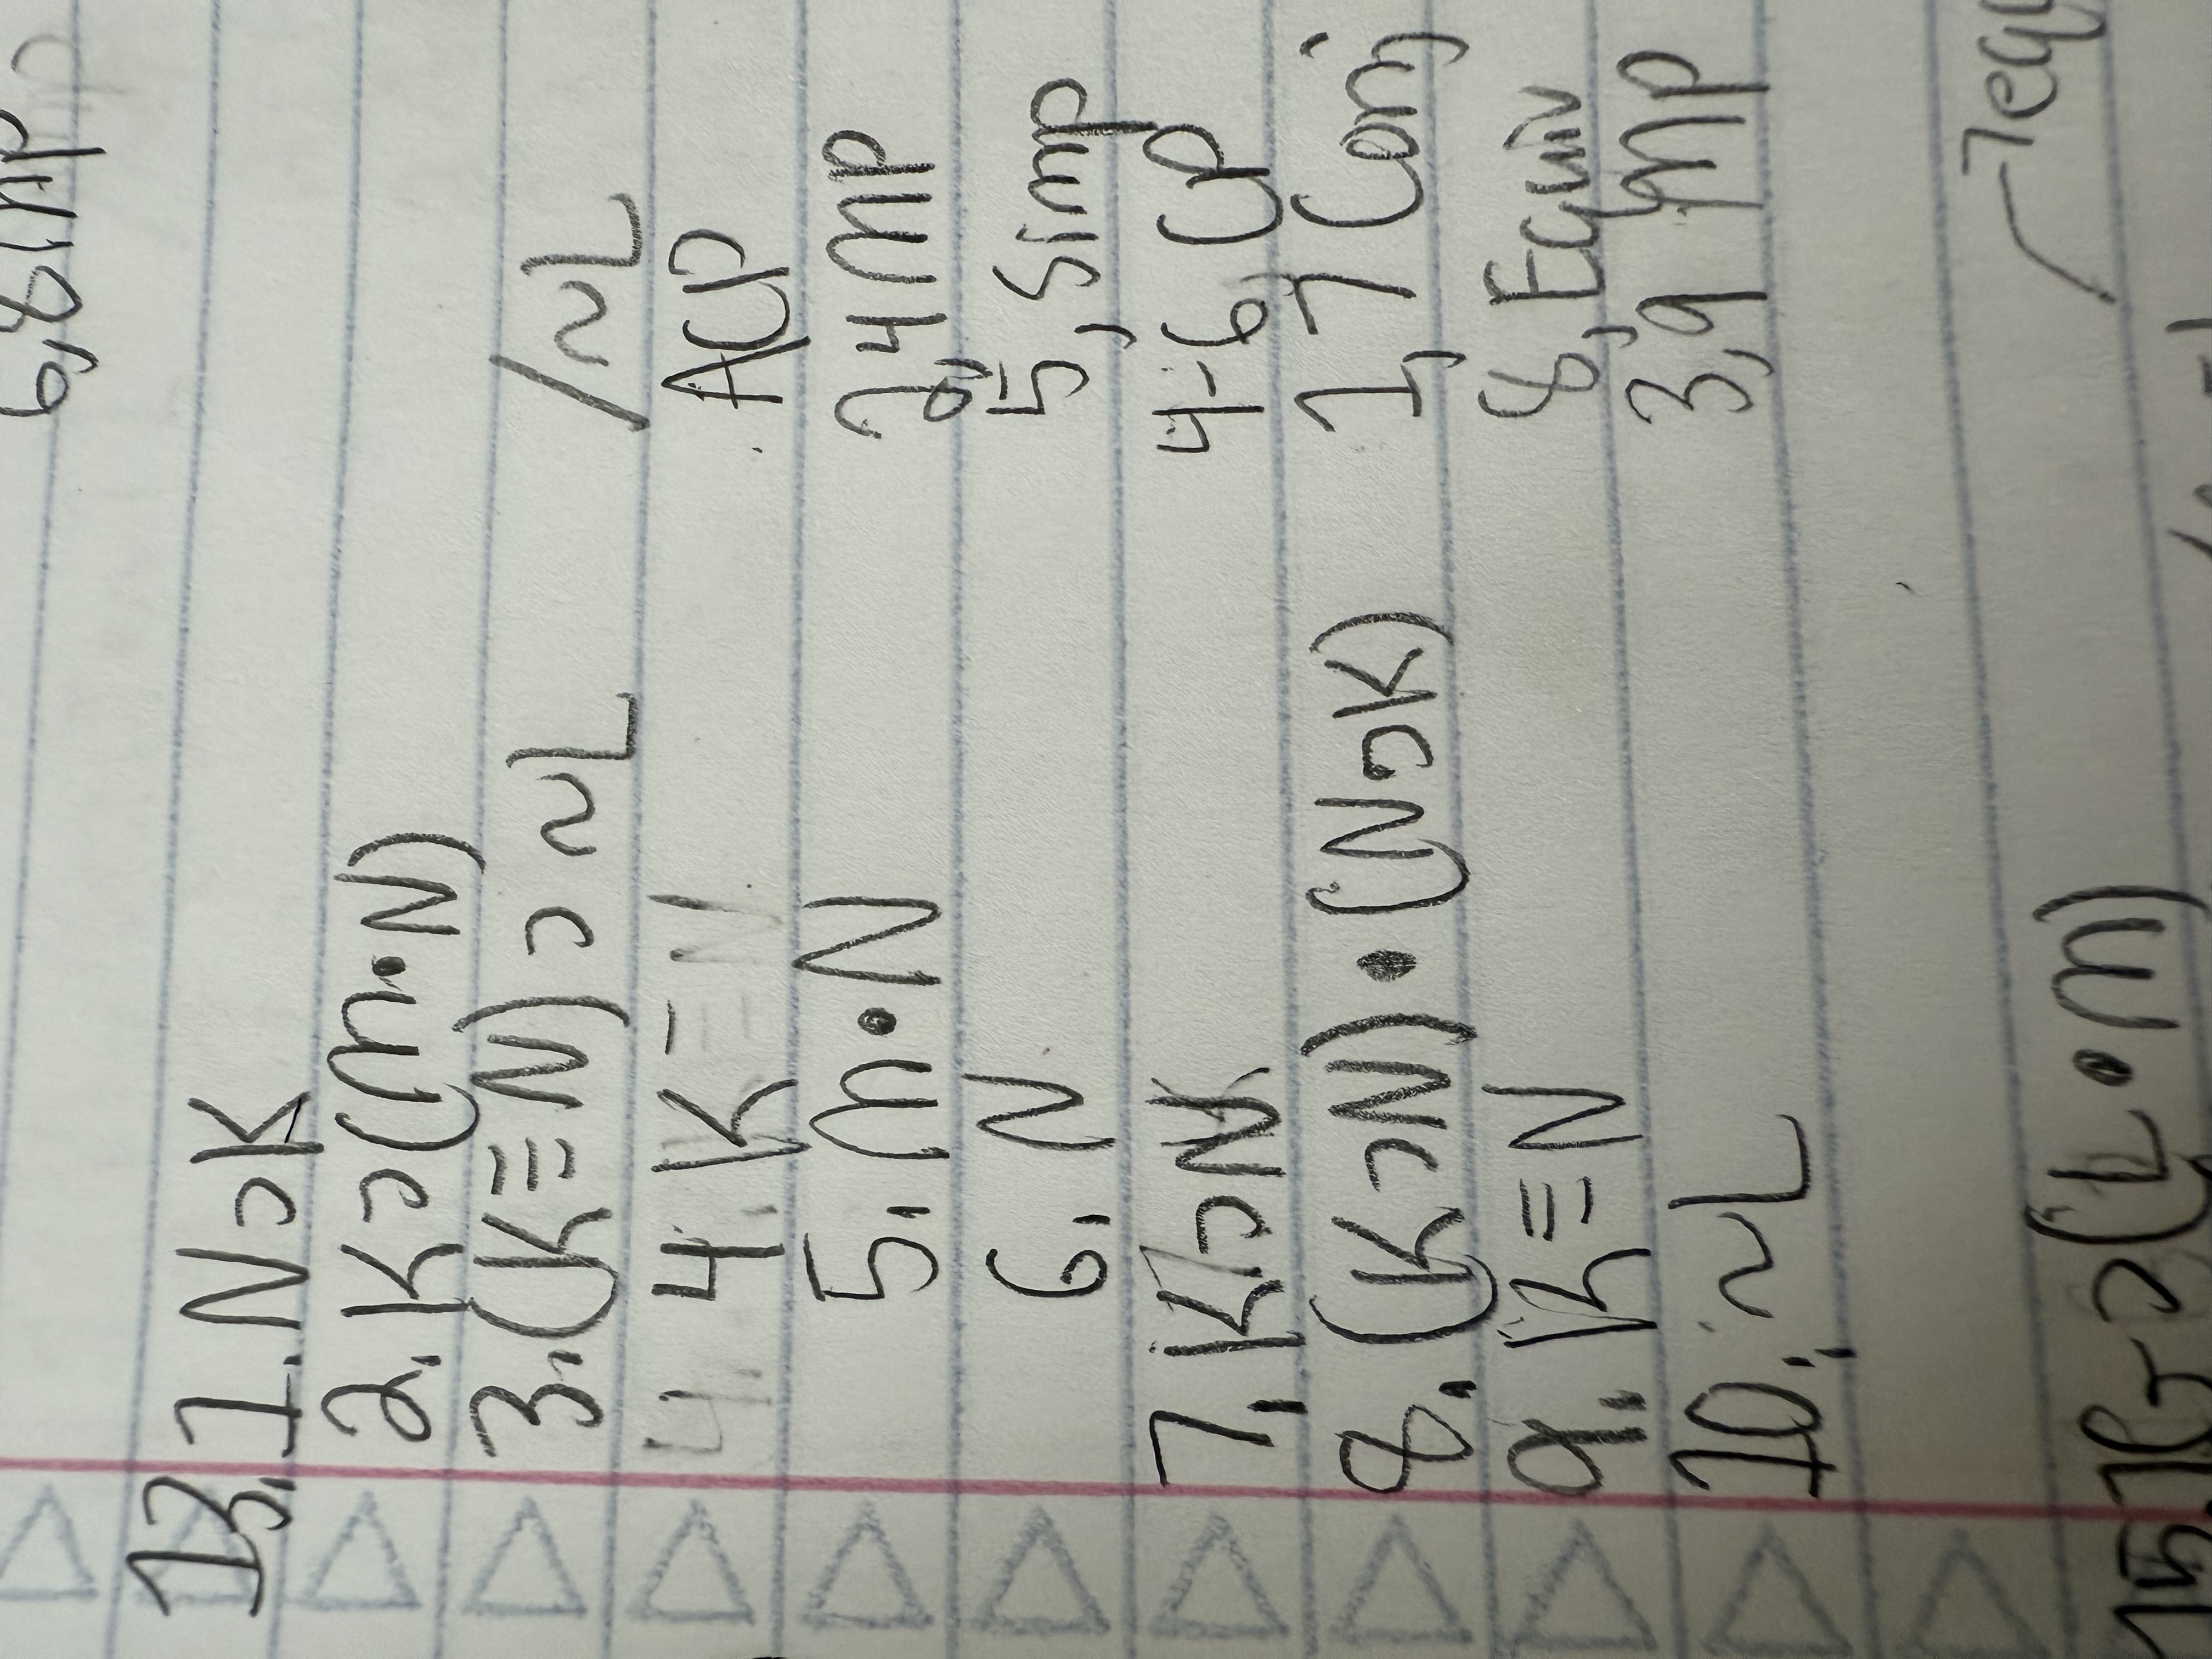 6, 8 mp
13. 1. N ⊃ K
2. K ⊃ (m • N)
3. (K ≡ N) ⊃ ~L /~L
4. K ACP
5. m • N 2, 4 mp
6. N 5, Simp
7. K ⊃ N 4-6, CP
8. (K ⊃ N) • (N ⊃ K) 1, 7 Conj
9. K ≡ N 8, Equiv
10. ~L 3, 9 mp
(L • m)